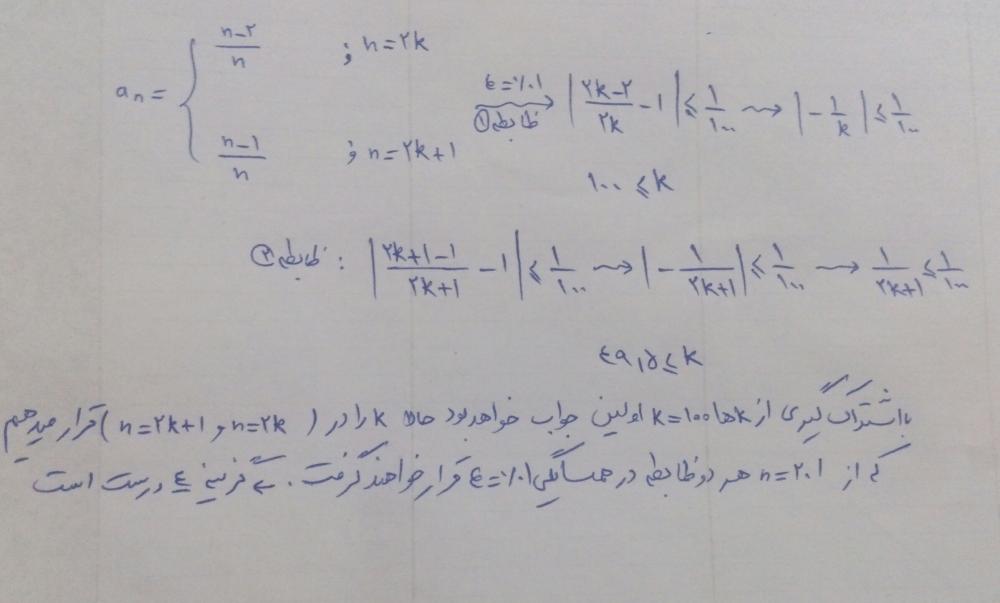 aₙ = { (n-۲)/n ; n=۲k
(n-۱)/n ; n=۲k+۱
ε=٪۰۱ ضابطه ① → |(۲k-۲)/۲k - ۱| ≤ ۱/۱۰۰ ⇝ |-۱/k| ≤ ۱/۱۰۰
۱۰۰ ≤ k
ضابطه ② : |(۲k+۱-۱)/(۲k+۱) - ۱| ≤ ۱/۱۰۰ ⇝ |-۱/(۲k+۱)| ≤ ۱/۱۰۰ ⇝ ۱/(۲k+۱) ≤ ۱/۱۰۰
۴۹,۵ ≤ k
با اشتراک گیری از kها k=۱۰۰ اولین جواب خواهد بود حالا k را در (n=۲k و n=۲k+۱) قرار میدهیم
که از n=۲۰۱ هر دو ضابطه در همسایگی ε=٪۰۱ قرار خواهند گرفت. پس گزینه ۴ درست است